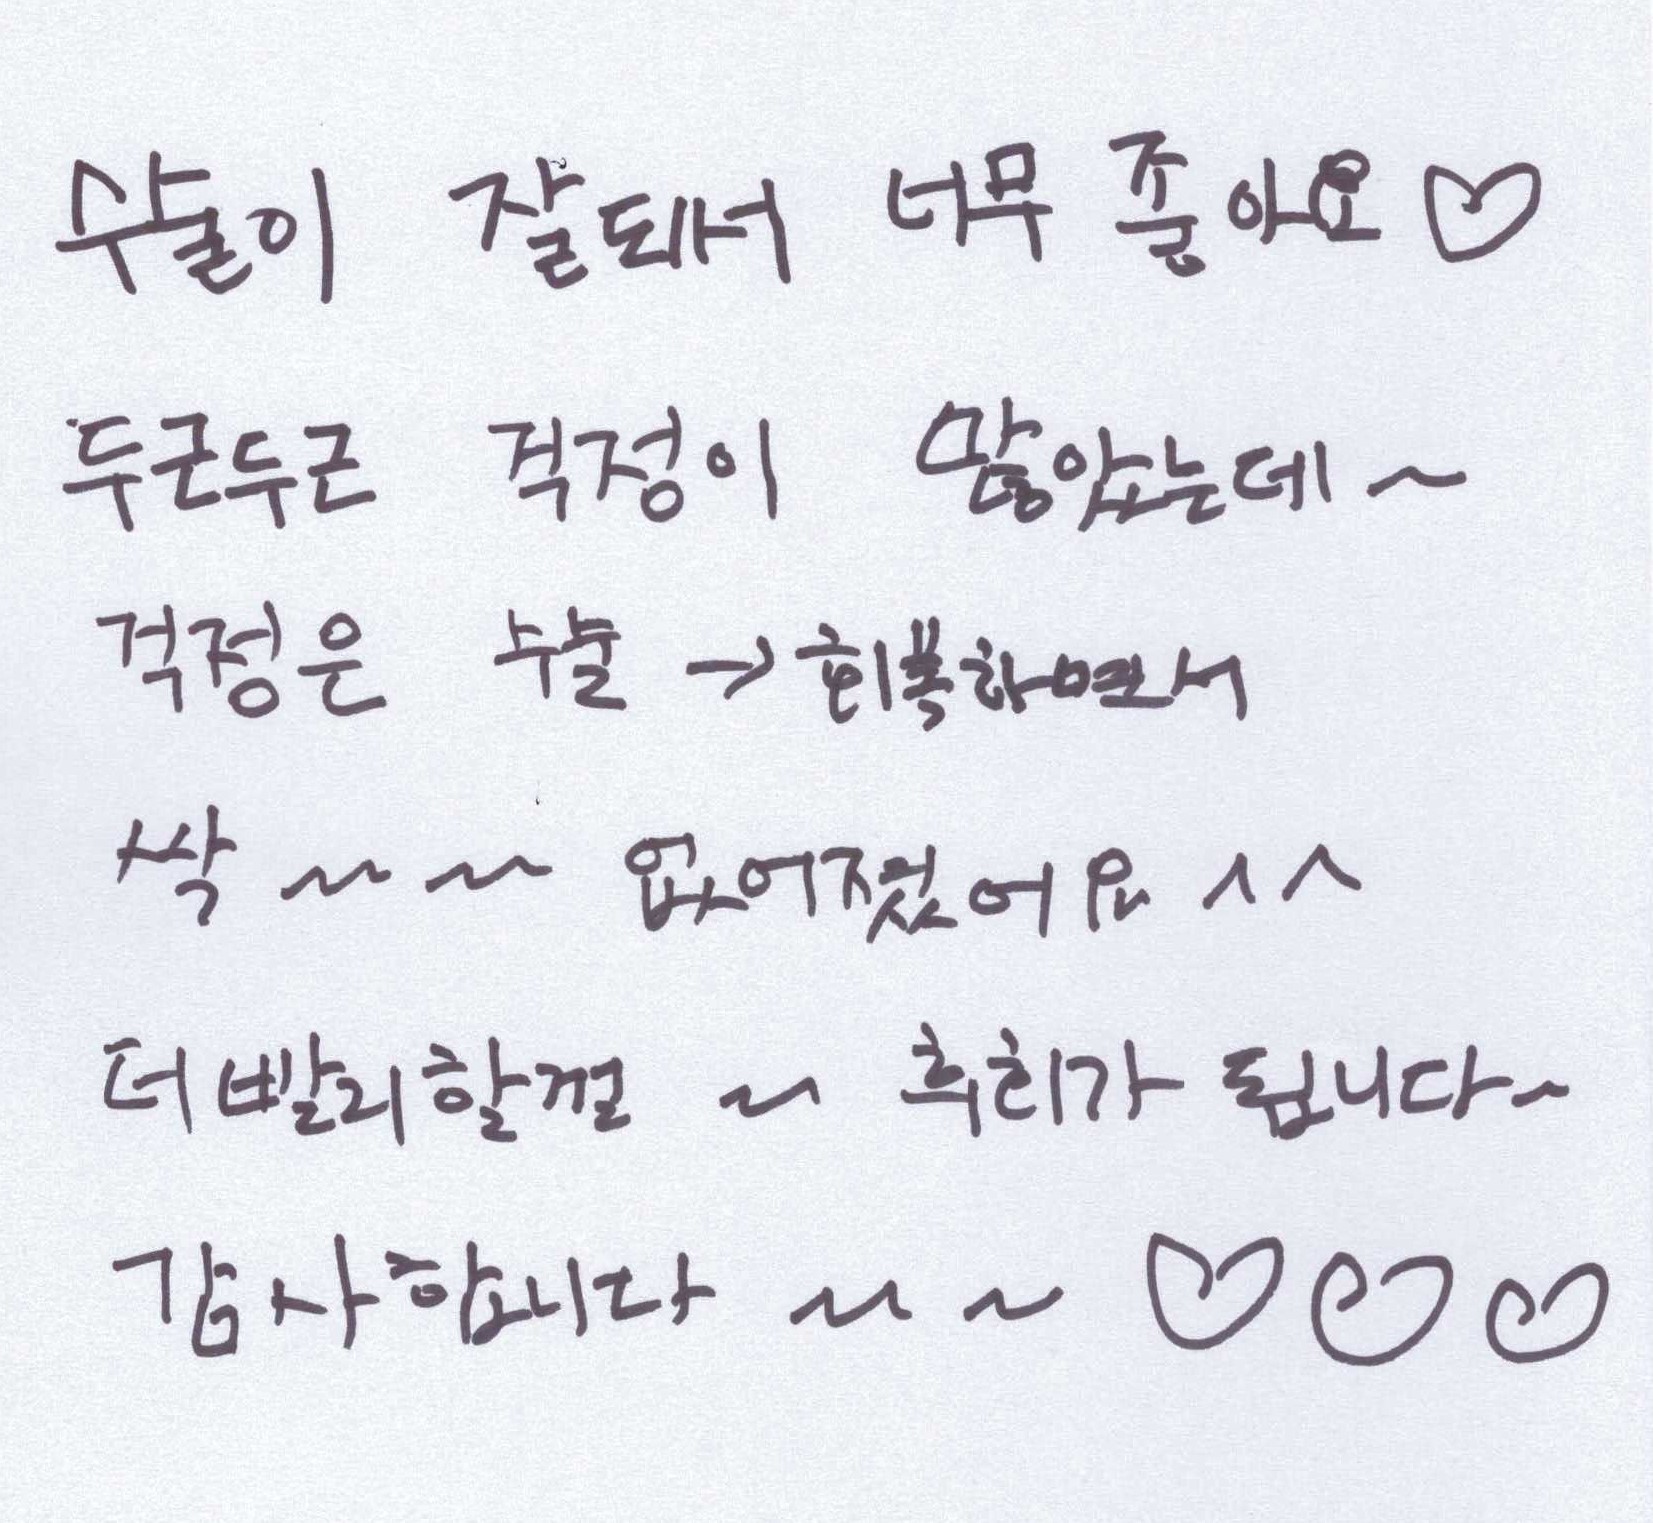 수술이 잘되서 너무 좋아요♡
두근두근 걱정이 많았는데~
걱정은 수술 → 회복하면서
싹 ~~ ~~ 없어졌어요 ^^
더 빨리할껄 ~ 후회가 됩니다~
감사합니다 ~~ ~ ♡♡♡